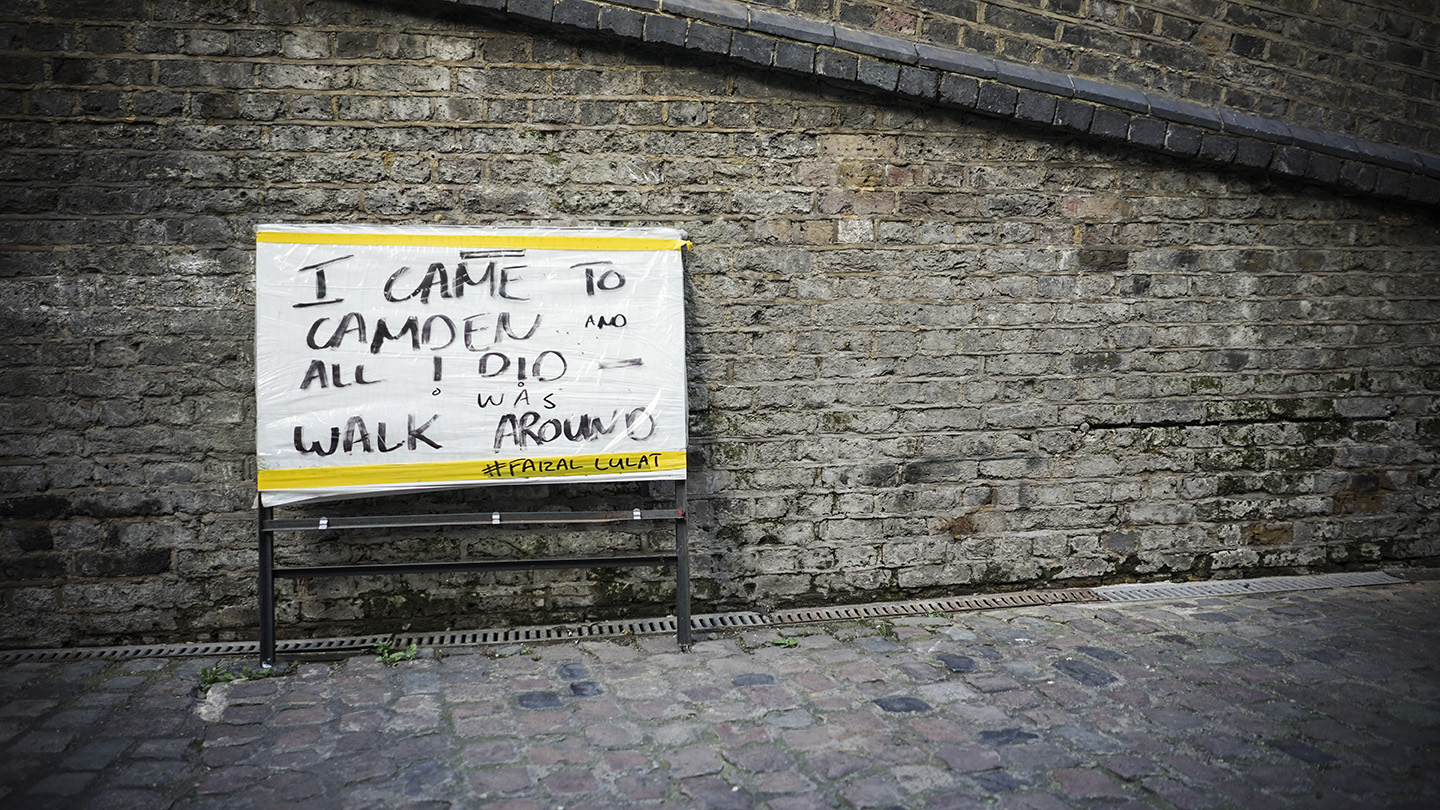 I CAME TO
CAMDEN AND
ALL I DID –
WAS
WALK AROUND
#FAIZAL LULAT